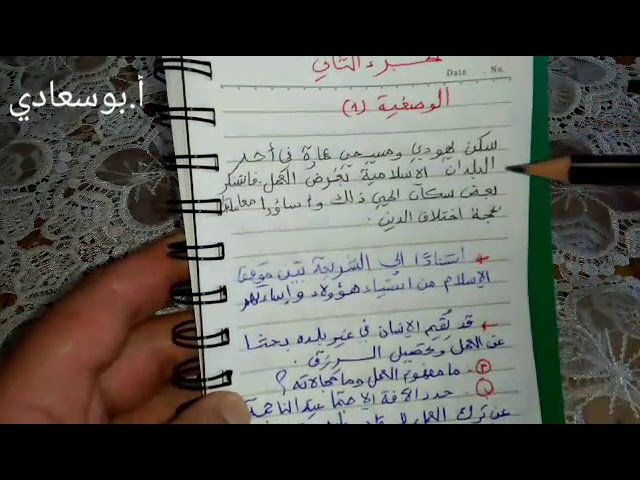 أ.بوسعادي
الجزء الثاني
Date . No.
الوضعية (1)
سكن يهودي ومسيحي عمارة في أحد
البلدان الاسلامية بغرض العمل. فاستنكر
بعض سكان الحي ذلك وأساؤوا معاملتهم
بحجة اختلاف الدين.
استنادا الى الشريعة بيّن موقف
الإسلام من استياء هؤولاء وإساءتهم
قد يقيم الإنسان في غير بلده بحثا
عن العمل وتحصيل الرزق.
. ما مفهوم العمل وما مجالاته؟
. حدد الآفة الاجتماعية الناجمة
عن ترك العمل